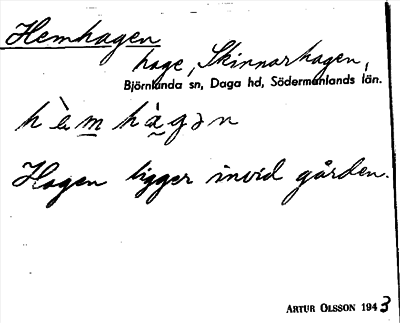 Hemhagen
hage, Skinnarhagen,
Björnlunda sn, Daga hd, Södermanlands län.
hὲm hàgən
Hagen ligger invid gården.
ARTUR OLSSON 1943